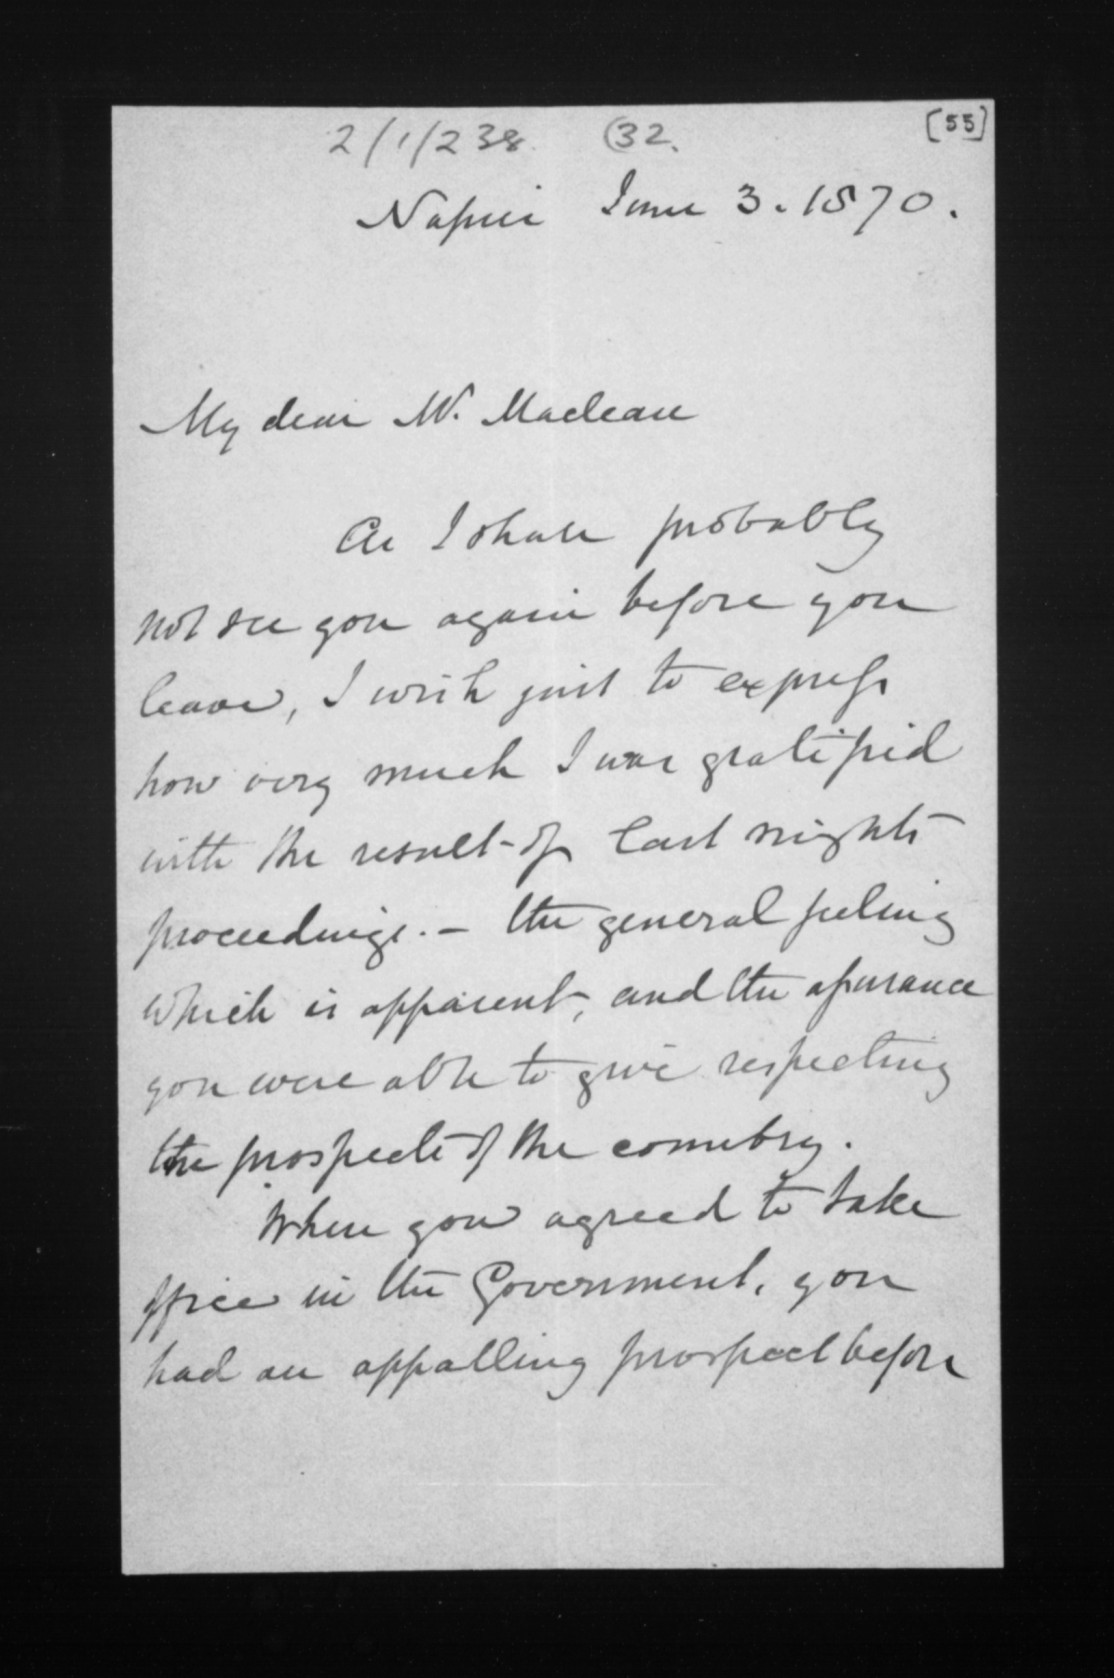 2/1/238 (32.
[55]
Napier June 3. 1870.
My dear Mr. Maclean
As I shall probably
not see you again before you
leave, I wish just to express
how very much I was gratified
with the result of last nights
proceedings. — the general feeling
which is apparent, and the assurance
you were able to give respecting
the prospects of the country.
When you agreed to take
office in the Government, you
had an appalling prospect before